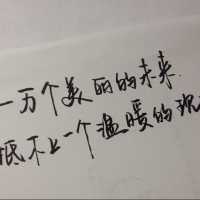 一万个美丽的未来
抵不上一个温暖的现